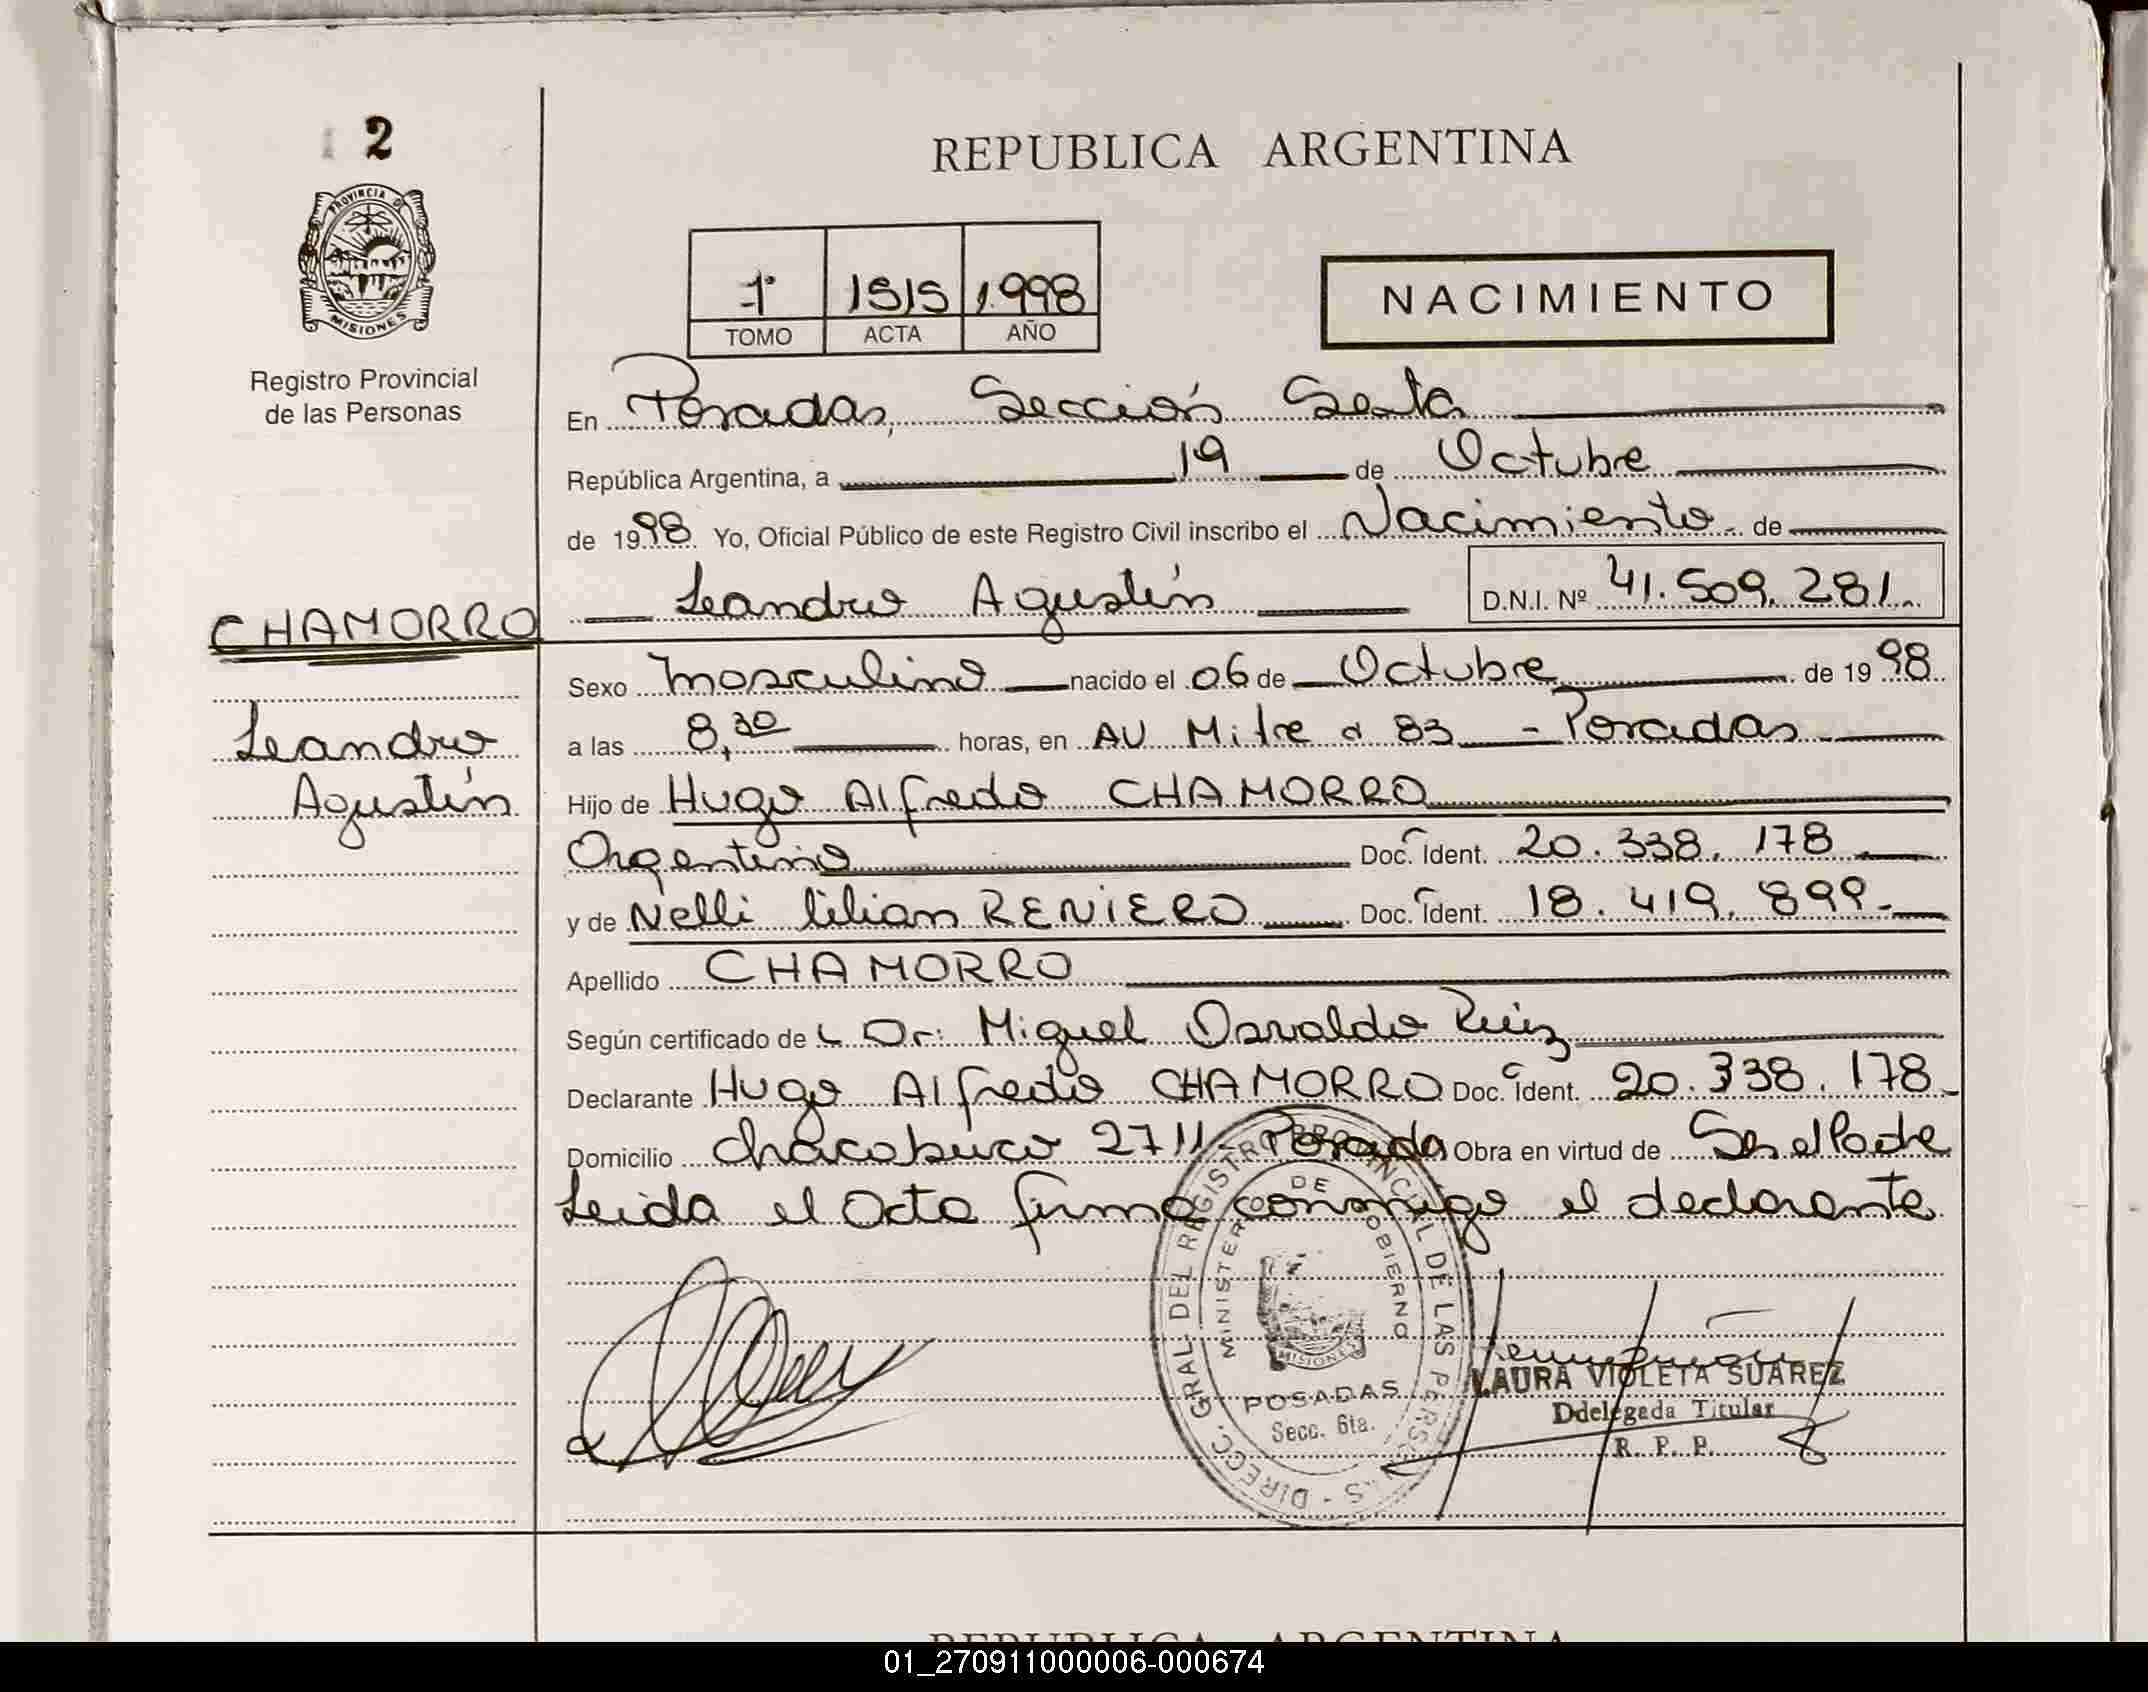 2
PROVINCIA DE
MISIONES
Registro Provincial
de las Personas
REPUBLICA ARGENTINA
1º 1515 1.998
TOMO ACTA AÑO
NACIMIENTO
En Posadas, Sección Sexta
República Argentina, a 19 de Octubre
de 1998 Yo, Oficial Público de este Registro Civil inscribo el Nacimiento de
Leandro Agustín D.N.I. Nº 41.509.281.
CHAMORRO
Leandro
Agustín
Sexo Masculino nacido el 06 de Octubre de 1998
a las 8,30 horas, en AU Mitre a 83 - Posadas
Hijo de Hugo Alfredo CHAMORRO
Argentino Doc. Ident. 20.338.178
y de Nelli Lilian RENIERO Doc. Ident. 18.419.899.
Apellido CHAMORRO
Según certificado de Dr: Miguel Osvaldo Ruiz
Declarante Hugo Alfredo CHAMORRO Doc. Ident. 20.338.178
Domicilio Chacabuco 2711 - Posada Obra en virtud de Ser el Padre
Leida el Acta firma conmigo el declarante
DIRECC. GRAL. DEL REGISTRO PROVINCIAL DE LAS PERSONAS
MINISTERIO DE GOBIERNO
MISIONES
POSADAS
Secc. 6ta.
LAURA VIOLETA SUAREZ
Ddelegada Titular
R. P. P.
REPUBLICA ARGENTINA
01_270911000006-000674